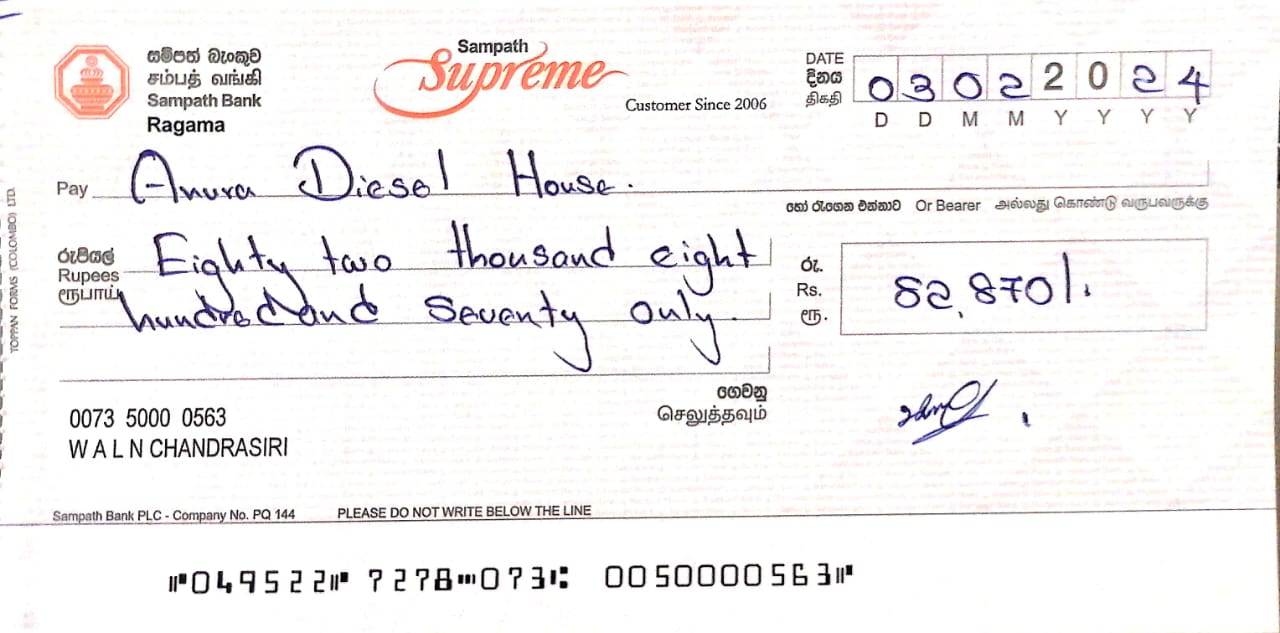 සම්පත් බැංකුව
சம்பத் வங்கி
Sampath Bank
Ragama
Sampath
Supreme
Customer Since 2006
DATE
දිනය
திகதி
0 3 0 2 2 0 2 4
D D M M Y Y Y Y
Pay Anura Diesel House.
හෝ රැගෙන එන්නාට Or Bearer அல்லது கொண்டு வருபவருக்கு
රුපියල්
Rupees
ரூபாய்
Eighty two thousand eight
hundred and seventy only.
රු.
Rs.
ரூ.
82,870/.
ගෙවනු
செலுத்தவும்
0073 5000 0563
W A L N CHANDRASIRI
Sampath Bank PLC - Company No. PQ 144 PLEASE DO NOT WRITE BELOW THE LINE
⑈049522⑈ 7278⑉073⑆ 0050000563⑈
TOPPAN FORMS (COLOMBO) LTD.